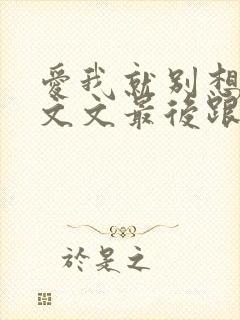 愛我就別想
文文最後跟
於是之